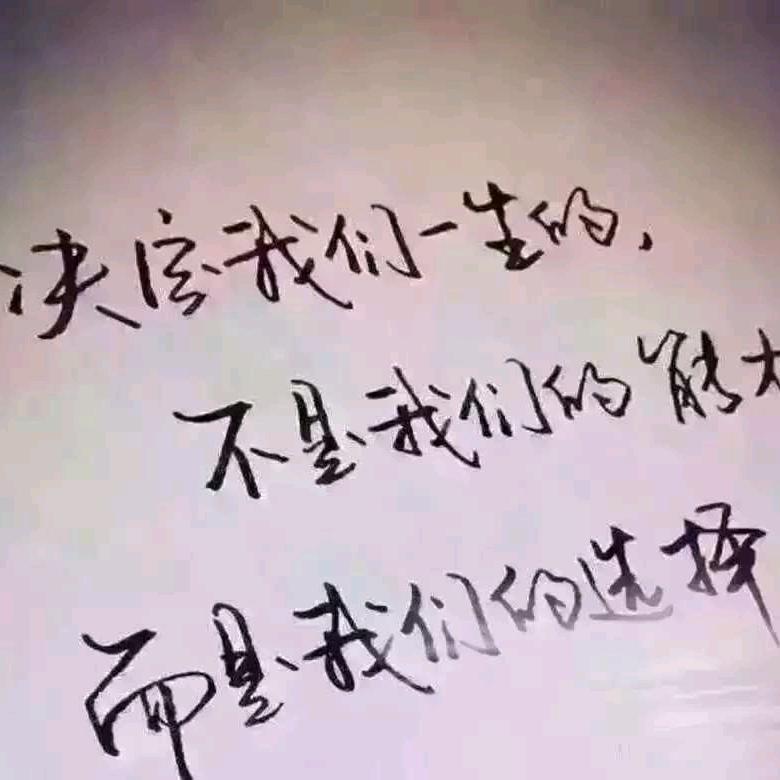 决定我们一生的，
不是我们的能力
而是我们的选择